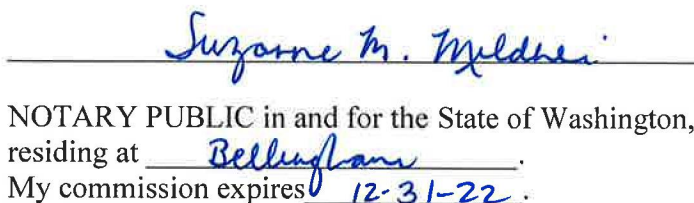 Suzanne M.
NOTARY PUBLIC in and for the State of Washington,
residing at Bellingham.
My commission expires 12-31-22.